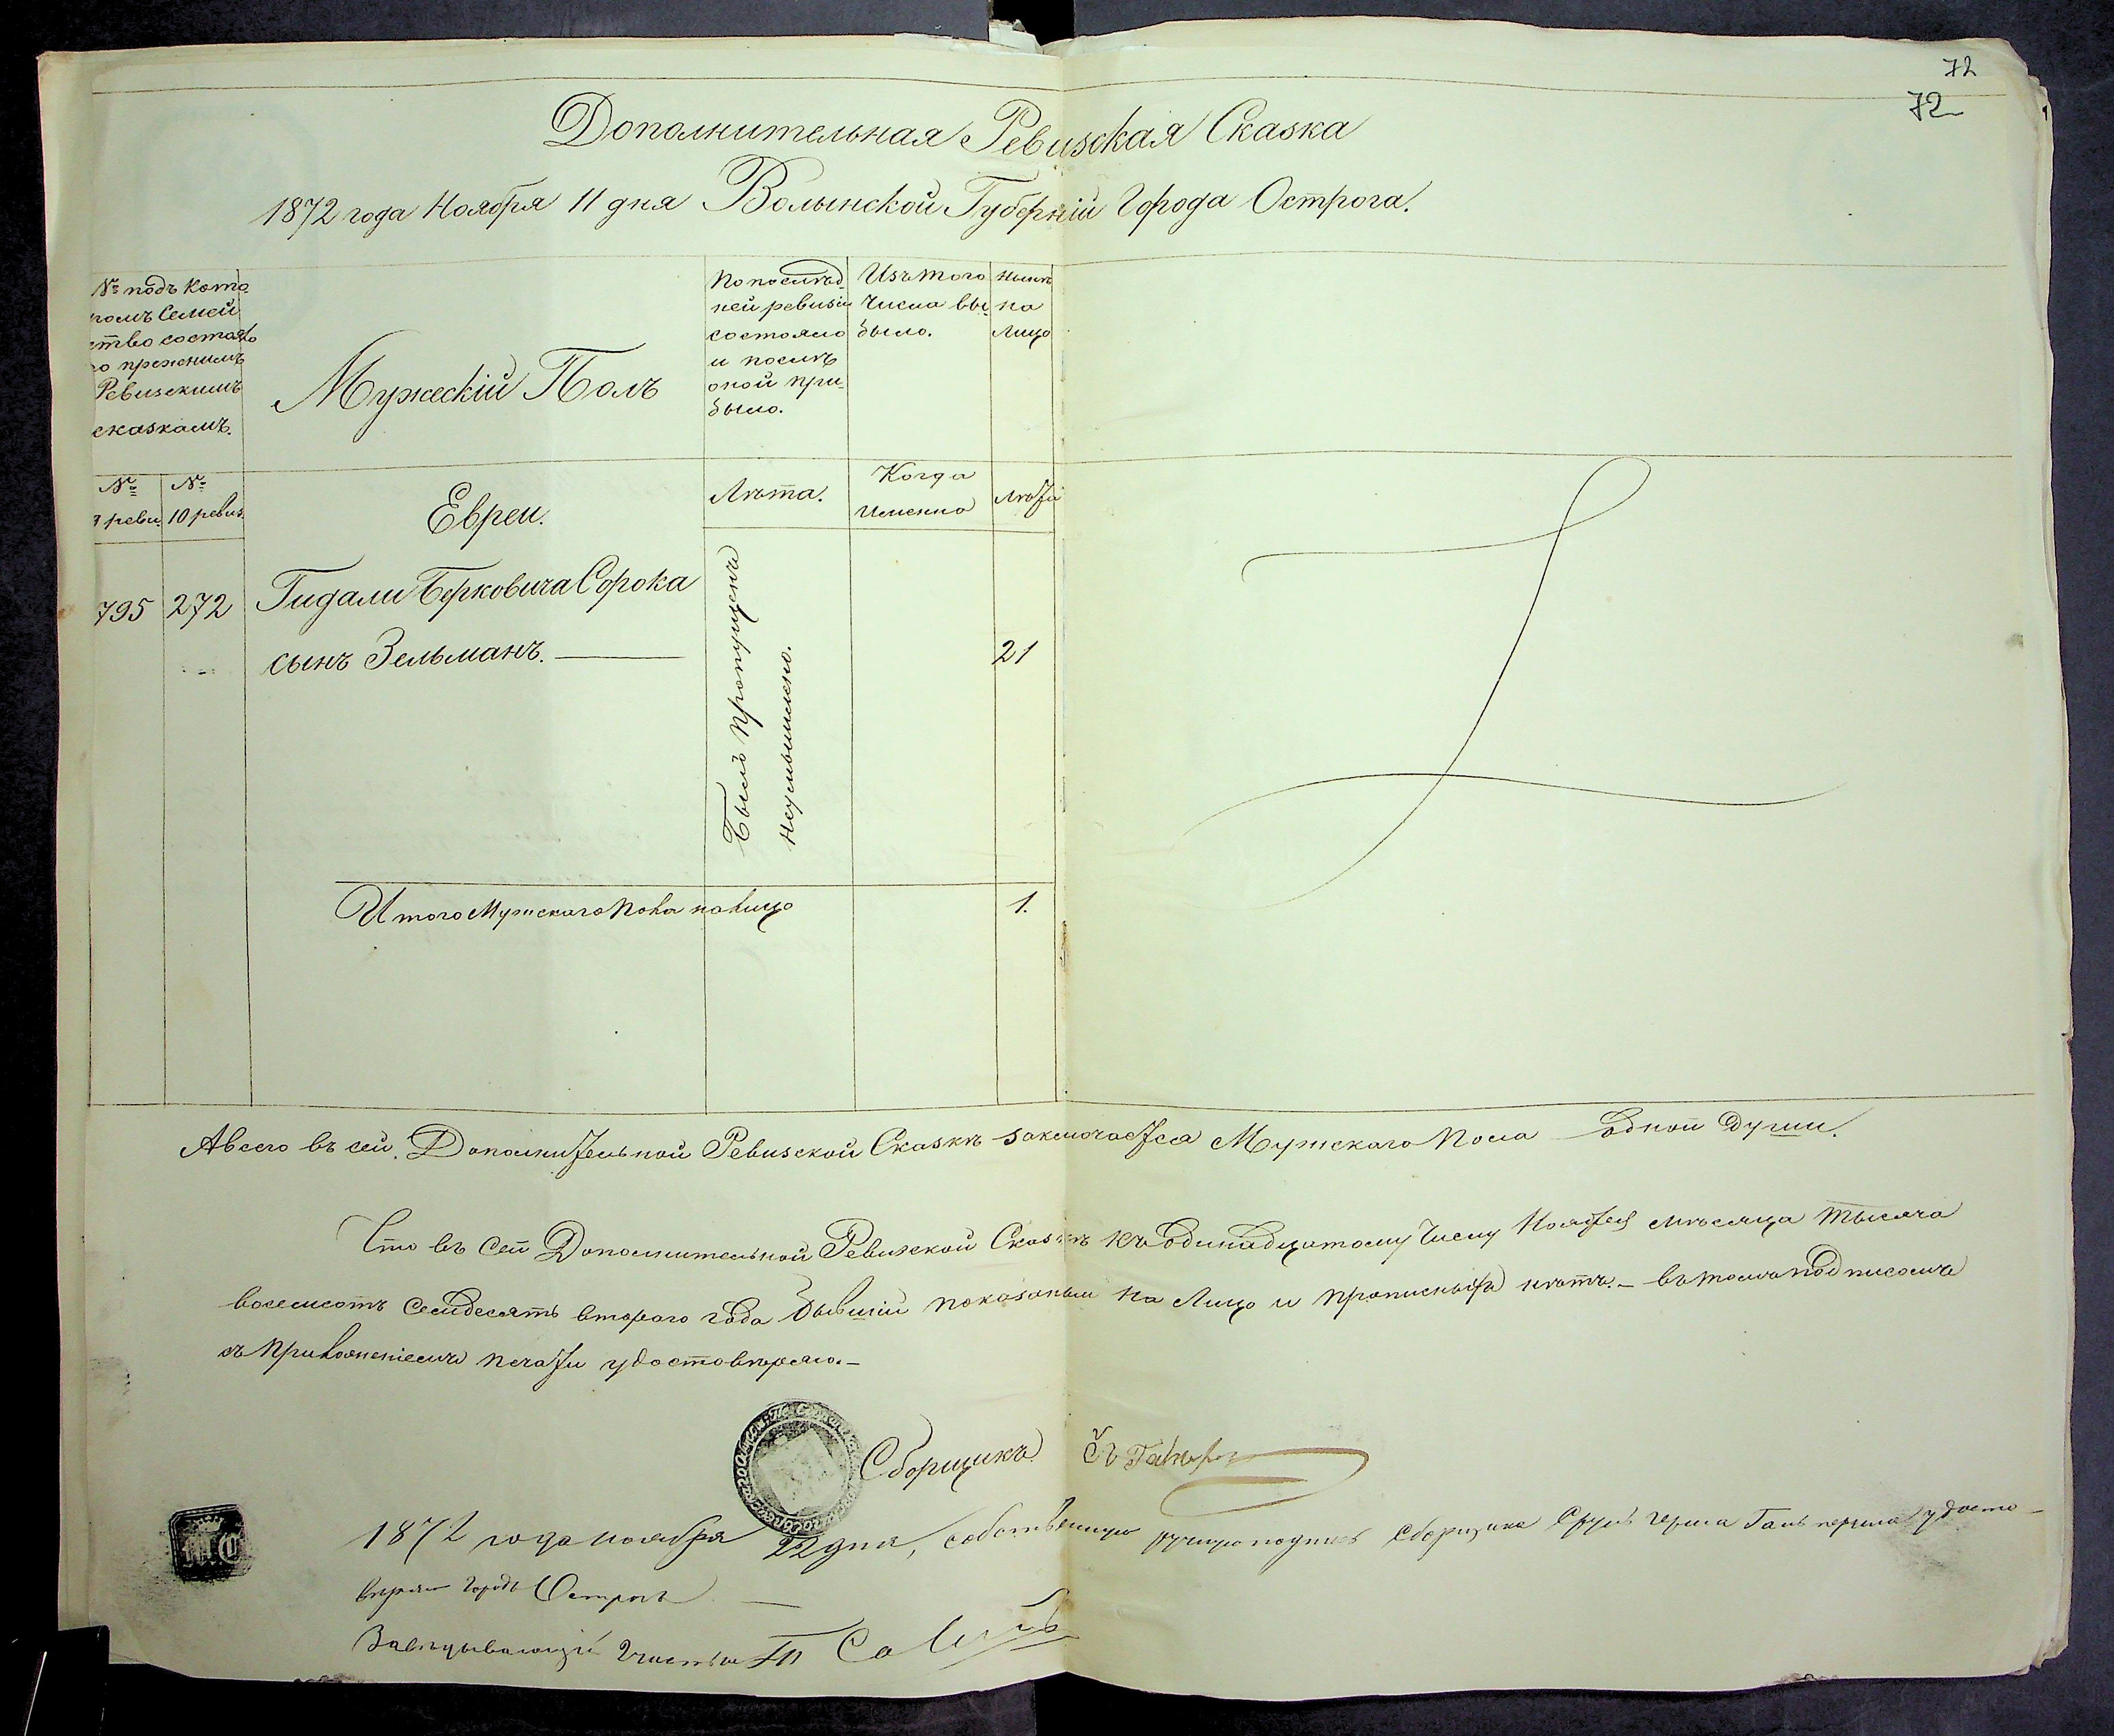 72
72
Дополнительная Ревизская Сказка
1872 года Ноября 11 дня Волынской Губерніи Города Острога.
№ подъ кото
ромъ Семей
ство состояло
по прежнимъ
Ревизскимъ
сказкамъ.
Мужескій Полъ
По послѣд
ней ревизіи
состояло
и послѣ
оной при-
было.
Изъ того
числа вы
было.
Нынѣ
на
лицо
№
9 реви.
№
10 ревиз.
Евреи.
Лѣта.
Когда
именно
Лѣта
795 272 Гидали Берковича Сорока
сынъ Зельманъ. 21
Былъ пропущенъ
неумышлено.
Итого Мужскаго пола на лицо 1.
А всего въ сей Дополнительной Ревизской Сказкѣ заключается Мужскаго пола одной души.
Что въ сей Дополнительной Ревизской Сказкѣ къ одинадцатому числу Ноября мѣсяца тысяча
восемсотъ семдесятъ второго года бывшіи показаныи на лицо и прописныхъ нѣтъ. – въ томъ подписомъ
съ приложеніемъ печати удостовѣряю. –
Сборщикъ
1872 года ноября 22 дня, собственную ручную подпись Сборщика Сруль Герша удосто-
вѣряю городъ Острогъ
Завѣдывающій Участка